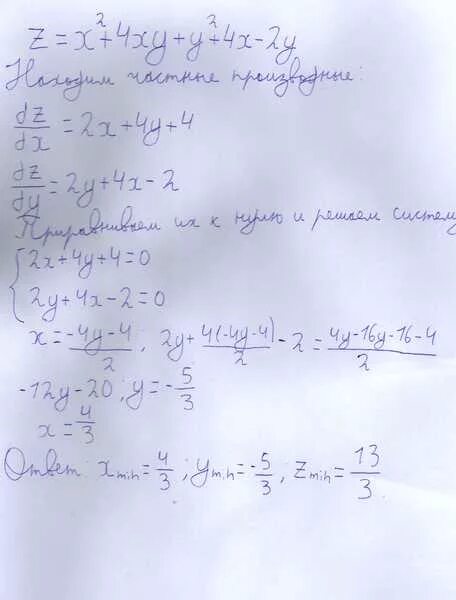 z = x² + 4xy + y² + 4x - 2y
Находим частные производные:
dz/dx = 2x + 4y + 4
dz/dy = 2y + 4x - 2
Приравниваем их к нулю и решаем систему
{ 2x + 4y + 4 = 0
2y + 4x - 2 = 0
x = (-4y - 4)/2, 2y + 4(-4y-4)/2 - 2 = (4y - 16y - 16 - 4)/2
-12y - 20; y = -5/3
x = 4/3
Ответ x min = 4/3; y min = -5/3; z min = 13/3.